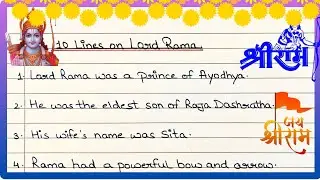 10 Lines on Lord Rama.
श्रीराम
1. Lord Rama was a prince of Ayodhya.
2. He was the eldest son of Raja Dashratha.
जय
श्रीराम
3. His wife's name was Sita.
4. Rama had a powerful bow and arrow.